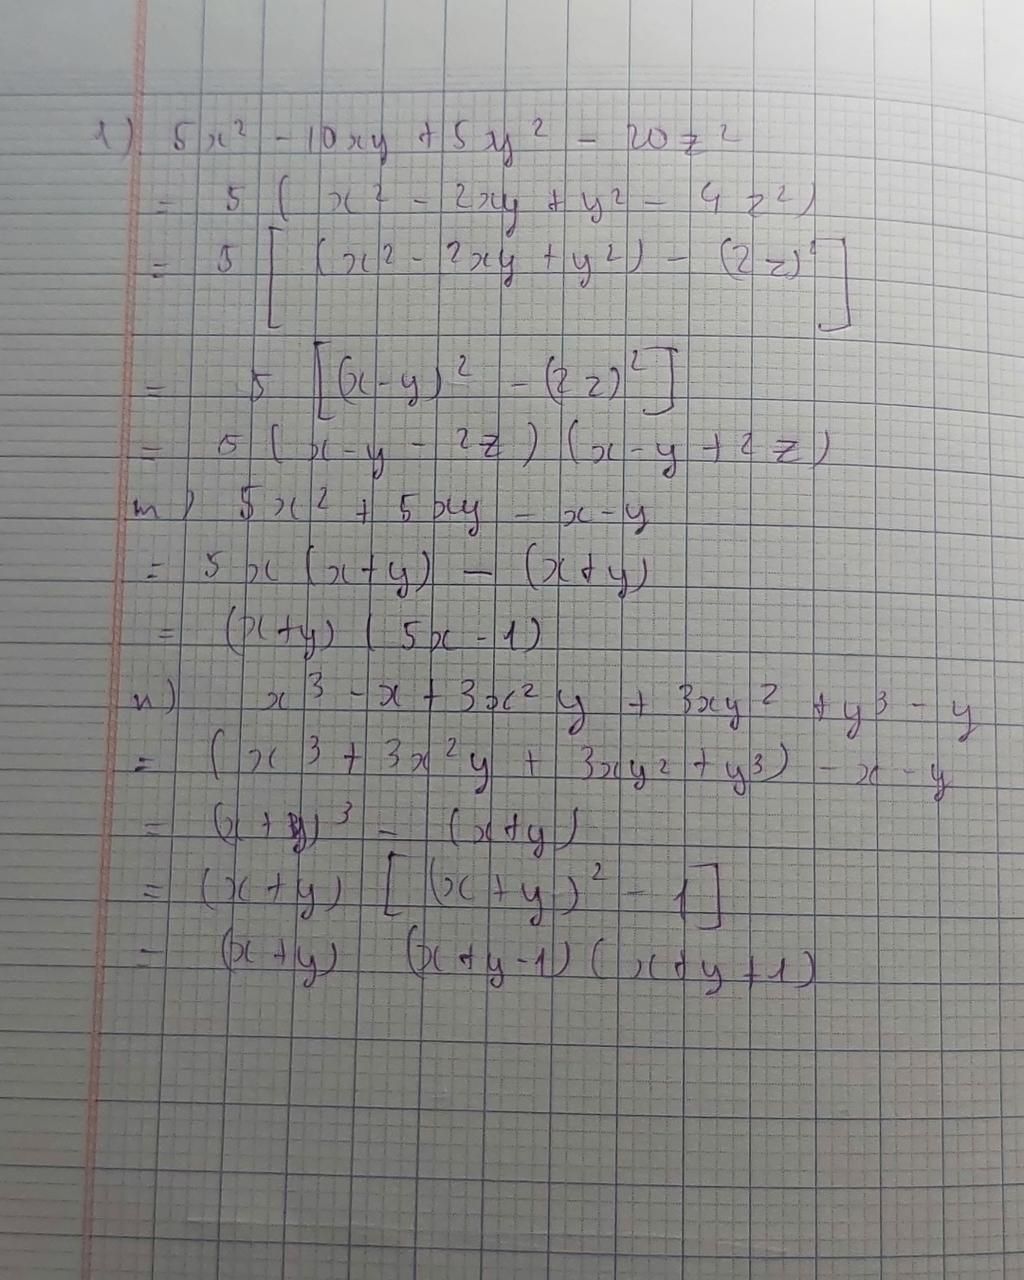 l) 5x² - 10xy + 5y² - 20z²
= 5 ( x² - 2xy + y² - 4z²)
= 5 [ (x² - 2xy + y²) - (2z)² ]
= 5 [(x-y)² - (2z)²]
= 5 (x-y - 2z) (x-y + 2z)
m) 5x² + 5xy - x - y
= 5x (x+y) - (x+y)
= (x+y) (5x - 1)
n) x³ - x + 3x²y + 3xy² + y³ - y
= (x³ + 3x²y + 3xy² + y³) - x - y
= (x+y)³ - (x+y)
= (x+y) [(x+y)² - 1]
= (x+y) (x+y-1) (x+y+1)